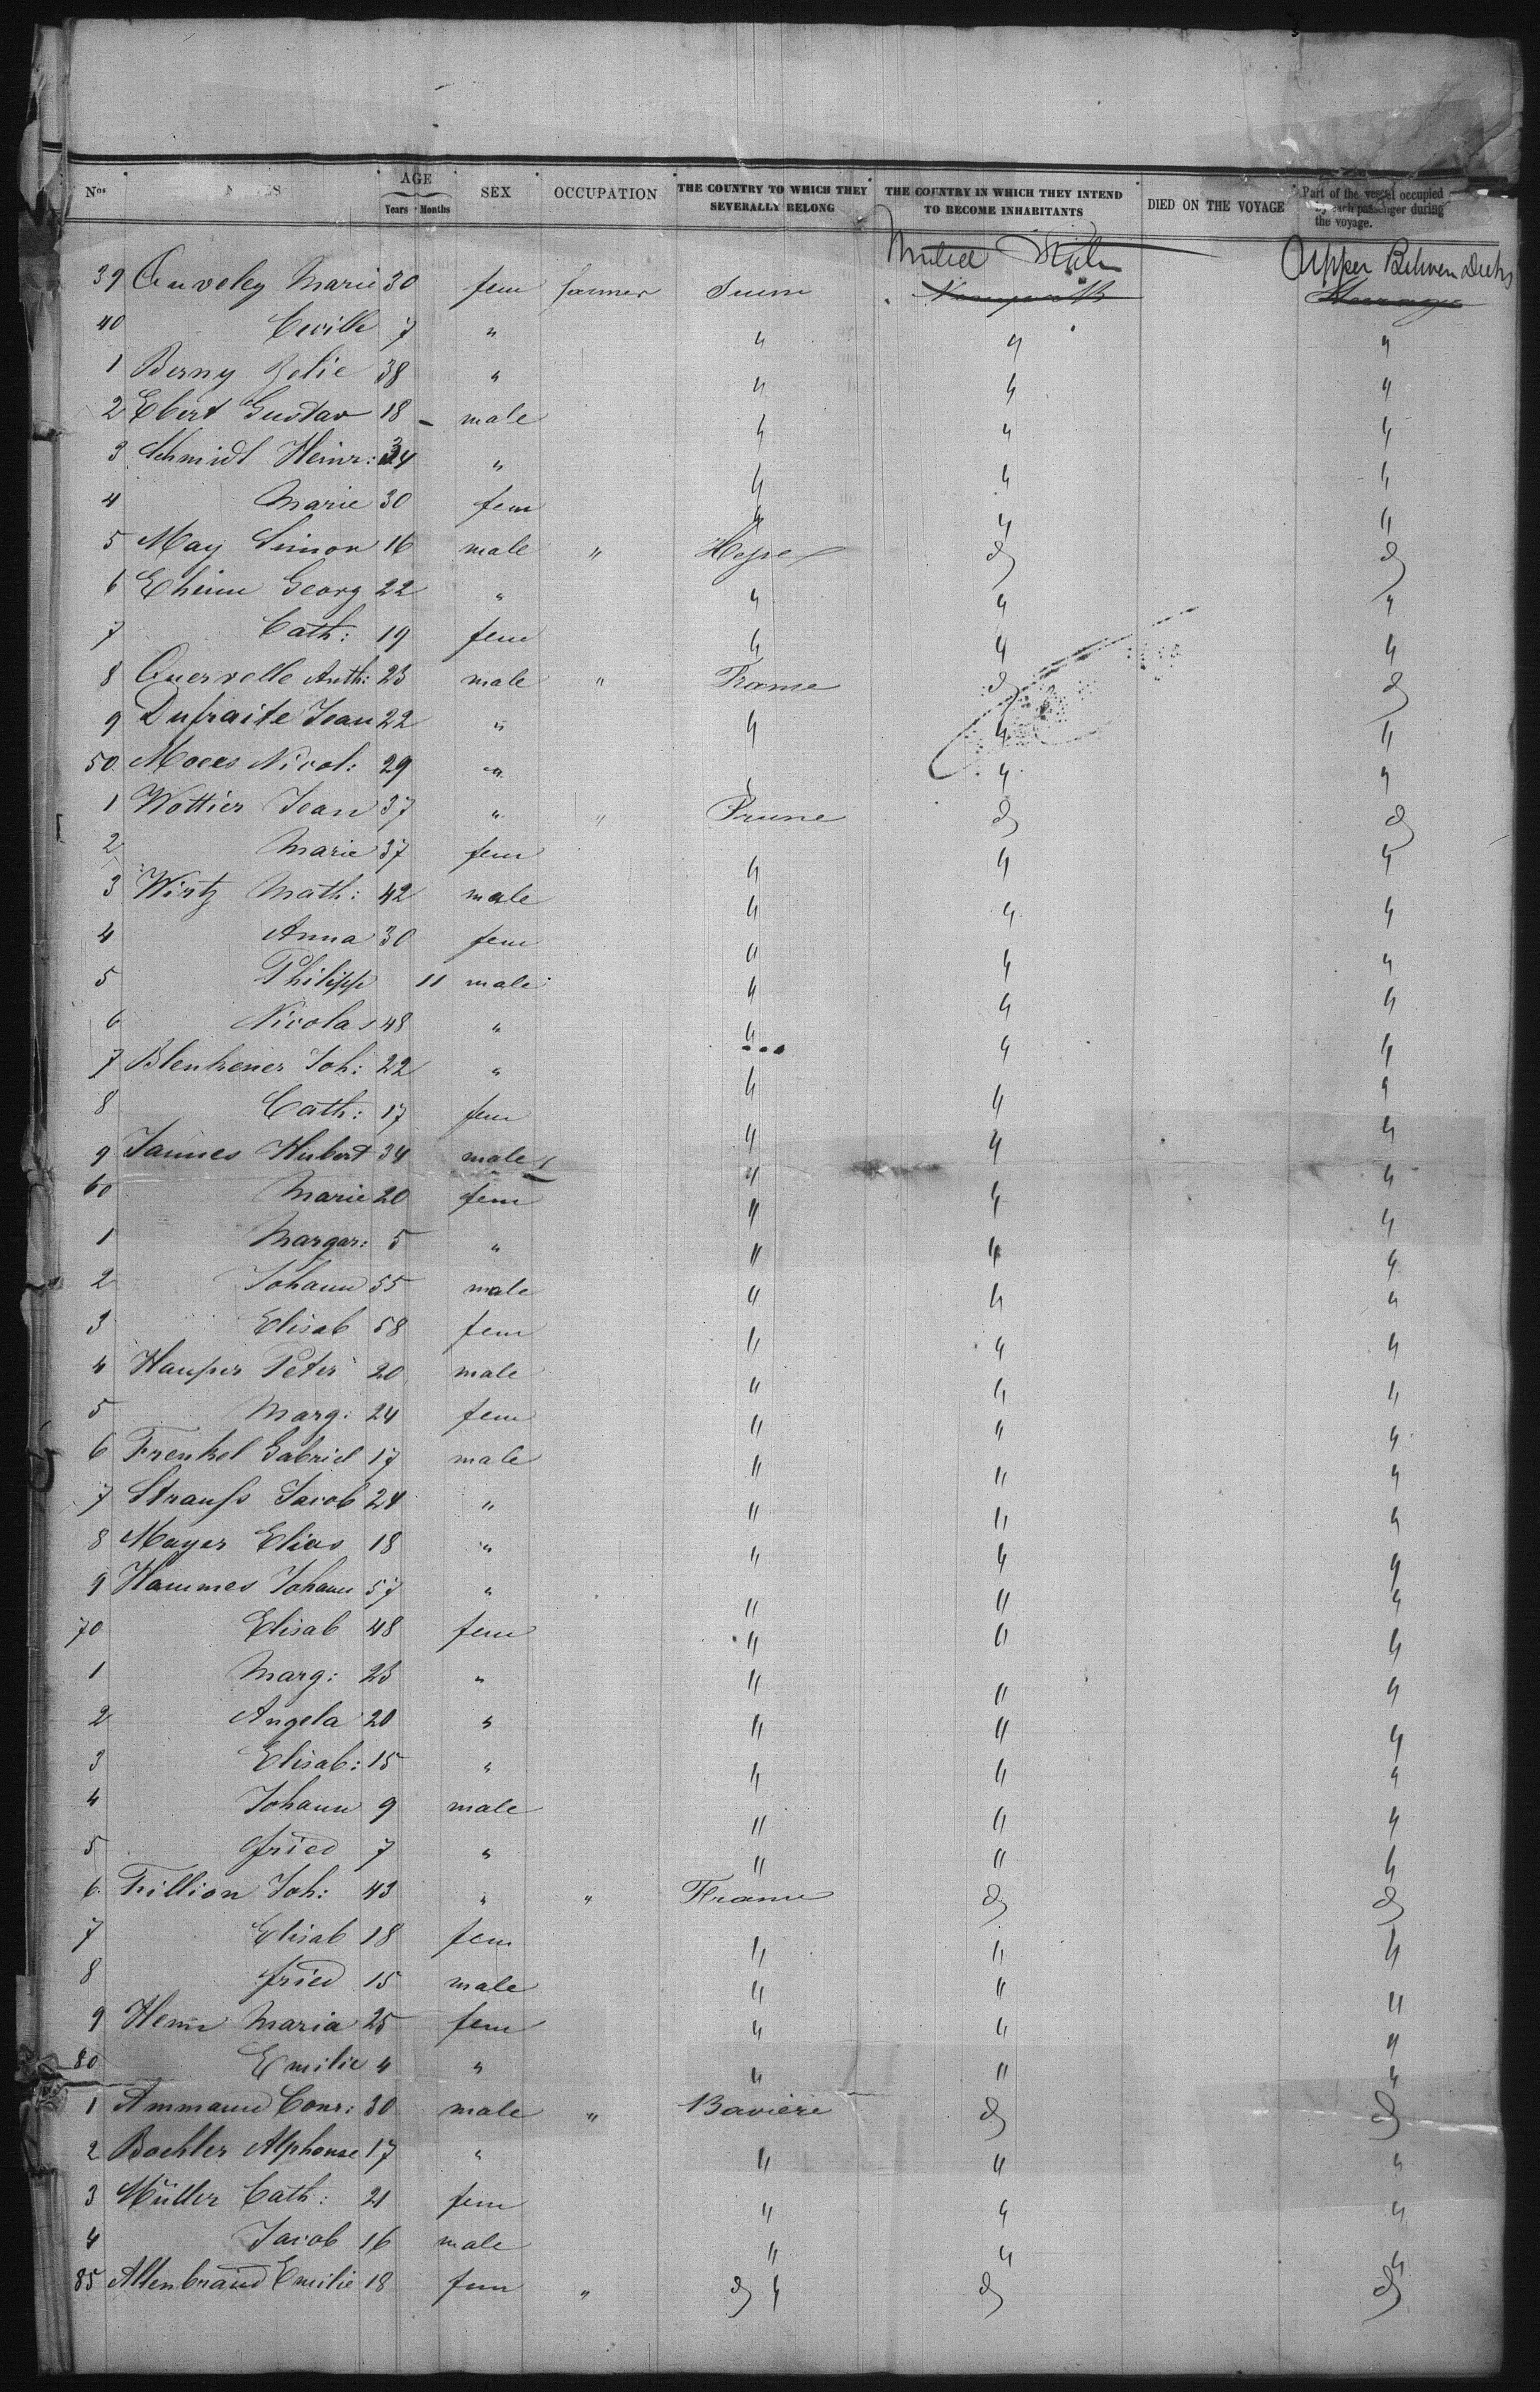 Nos NAMES AGE Years Months SEX OCCUPATION THE COUNTRY TO WHICH THEY SEVERALLY BELONG THE COUNTRY IN WHICH THEY INTEND TO BECOME INHABITANTS DIED ON THE VOYAGE Part of the vessel occupied by each passenger during the voyage.
United States Upper Between Decks
39 Marie 30 fem farmer
40 7 " " " "
1 Berny Zelie 38 " " " "
2 Ebert Gustav 18 male " " "
3 Schmidt Heinr: 34 " " " "
4 Marie 30 fem " " "
5 May Simon 16 male " Hesse do do
6 Eheim Georg 22 " " " "
7 Cath: 19 fem " " "
8 Quervelle Anth: 23 male " France do do
9 Dufraite Jean 22 " " " "
50 Moees Nicol: 29 " " " "
1 Wottier Jean 37 " " Prusse do do
2 Marie 37 fem " " "
3 Wirtz Math: 42 male " " "
4 Anna 30 fem " " "
5 Philipp 11 male " " "
6 Nicolas 48 " " " "
7 Blenkener Joh: 22 " " " "
8 Cath: 17 fem " " "
9 Jannes Hubert 34 male " " "
60 Marie 20 fem " " "
1 Margar: 5 " " " "
2 Johann 55 male " " "
3 Elisab 58 fem " " "
4 Hauper Peter 20 male " " "
5 Marg: 24 fem " " "
6 Frenkel Gabriel 17 male " " "
7 Strauss Jacob 24 " " " "
8 Mayer Elias 18 " " " "
9 Hammes Johann 57 " " " "
70 Elisab 48 fem " " "
1 Marg: 23 " " " "
2 Angela 20 " " " "
3 Elisab: 15 " " " "
4 Johann 9 male " " "
5 Fried 7 " " " "
6 Fillion Joh: 43 " " France do do
7 Elisab 18 fem " " "
8 Fried 15 male " " "
9 Maria 25 fem " " "
80 Emilie 4 " " " "
1 Ammann Conr: 30 male " Baviere do do
2 Boehler Alphonse 17 " " " "
3 Müller Cath: 21 fem " " "
4 Jacob 16 male " " "
85 Allenbrand Emilie 18 fem " do " do do